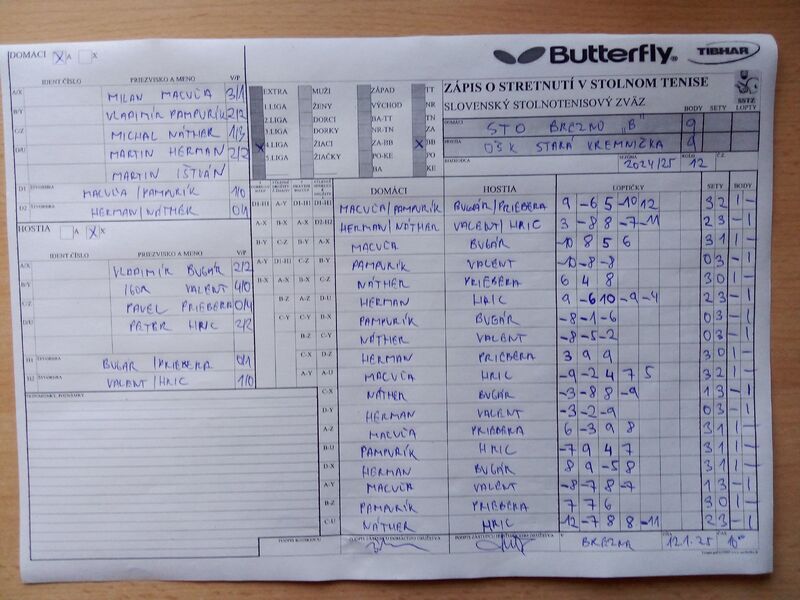 DOMÁCI X A X
Butterfly TIBHAR
IDENT.ČÍSLO PRIEZVISKO A MENO V/P
A/X MILAN MACUĽA 3/1
B/Y VLADIMÍR PAMPURÍK 2/2
C/Z MICHAL NÁTHER 1/3
D/U MARTIN HERMAN 2/2
MARTIN IŠTVÁN
D1 ŠTVORHRA MACUĽA/PAMPURÍK 1/0
D2 HERMAN/NÁTHER 0/1
HOSTIA A X X
IDENT.ČÍSLO PRIEZVISKO A MENO V/P
A/X VLADIMÍR BUGÁR 2/2
B/Y IGOR VALENT 4/0
C/Z PAVEL PRIEBERA 0/4
D/U PETER HRIC 2/2
H1 ŠTVORHRA BUGÁR/PRIEBERA 0/1
H2 ŠTVORHRA VALENT/HRIC 1/0
PRIPOMIENKY, POZNÁMKY
EXTRA MUŽI ZÁPAD TT
1.LIGA ŽENY VÝCHOD NR
2.LIGA DORCI BA-TT TN
3.LIGA DORKY NR-TN ZA
X 4.LIGA ŽIACI ZA-BB X BB
5.LIGA ŽIAČKY PO-KE PO
BA KE
ZÁPIS O STRETNUTÍ V STOLNOM TENISE
SLOVENSKÝ STOLNOTENISOVÝ ZVÄZ
SSTZ
BODY SETY LOPTY
DOMÁCI STO BREZNO "B" 9
HOSTIA OŠK STARÁ KREMNIČKA 9
ROZHODCA SEZÓNA 2024/25 KOLO 12 Č.Z.
DOMÁCI HOSTIA LOPTIČKY SETY BODY
D1-H1 A-Y D1-H1 D1-H1 MACUĽA/PAMPURÍK BUGÁR/PRIEBERA 9 -6 5 -10 12 3 2 1 -
A-X B-X C-X D2-H2 HERMAN/NÁTHER VALENT/HRIC 3 -8 8 -7 -11 2 3 - 1
B-Y C-Z B-Y A-X MACUĽA BUGÁR -10 8 5 6 3 1 1 -
A-Y D1-H1 C-Z B-Y PAMPURÍK VALENT -10 -8 -8 0 3 - 1
B-X A-X B-X C-Z NÁTHER PRIEBERA 6 4 8 3 0 1 -
B-Z A-Z D-U HERMAN HRIC 9 -6 10 -9 -4 2 3 - 1
C-Y C-Y B-X PAMPURÍK BUGÁR -8 -1 -6 0 3 - 1
B-Z C-Y NÁTHER VALENT -8 -5 -2 0 3 - 1
C-X D-Z HERMAN PRIEBERA 3 9 9 3 0 1 -
A-Y A-U MACUĽA HRIC -9 -2 4 7 5 3 2 1 -
C-X NÁTHER BUGÁR -3 -8 8 -9 1 3 - 1
D-Y HERMAN VALENT -3 -2 -9 0 3 - 1
A-Z MACUĽA PRIEBERA 6 -3 9 8 3 1 1 -
B-U PAMPURÍK HRIC -7 9 4 7 3 1 1 -
D-X HERMAN BUGÁR 8 9 -5 8 3 1 1 -
A-Y MACUĽA VALENT -8 -7 8 -7 1 3 - 1
B-Z PAMPURÍK PRIEBERA 7 7 6 3 0 1 -
C-U NÁTHER HRIC -12 -7 8 8 -11 2 3 - 1
PODPIS ROZHODCU PODPIS ZÁSTUPCU DOMÁCEHO DRUŽSTVA PODPIS ZÁSTUPCU HOSŤUJÚCEHO DRUŽSTVA V BREZNE DŇA 12.1.25 ČAS 10⁰⁰